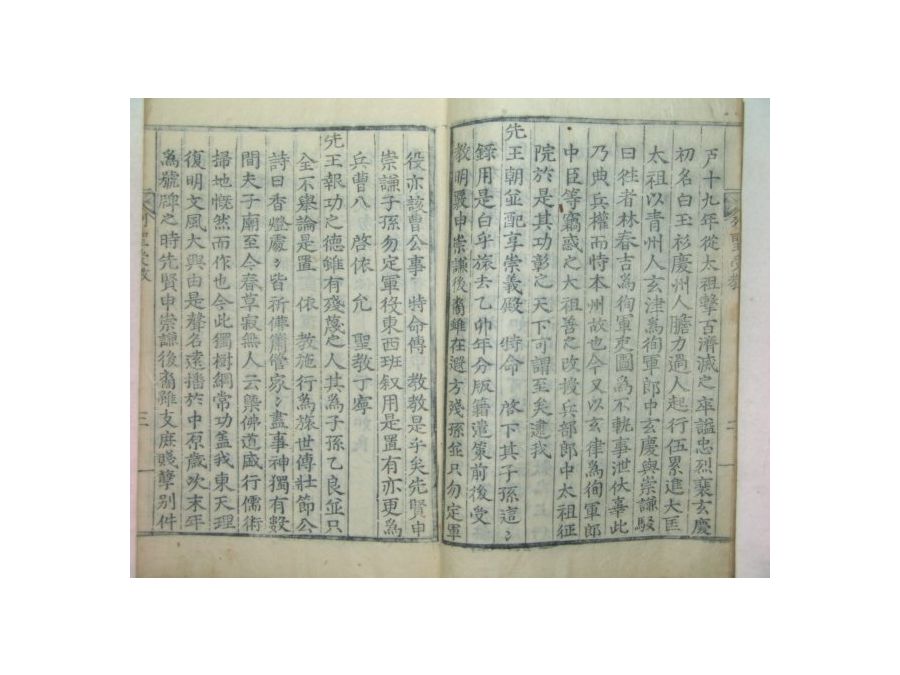 户十九年從太祖擊百濟滅之卒謚忠烈裵玄慶
初名白玉杉慶州人膽力過人起行伍累進大匡
太祖以青州人玄津為徇軍郎中玄慶與崇謙駁
曰往者林春吉為徇軍吏圖為不軌事泄伏辜此
乃典兵權而恃本州故也今又以玄律為徇軍郎
中臣等竊惑之太祖善之改授兵部郎中太祖征
院於是其功彰之天下可謂至矣逮我
先王朝並配享崇義殿 特命 啓下其子孫這〻
錄用是白乎旀去乙卯年分版籍遣策前後受
教明嚴申崇謙後裔雖在遐方殘孫並只勿定軍
役亦該曹公事 特命傳 教教是乎矣先賢申
崇謙子孫勿定軍役東西班叙用是置有亦更為
兵曹八 啓依 允 聖教丁寧
先王報功之德雖有殘蔑之人其為子孫乙良並只
全不舉論是置 依 教施行為旀世傳壯節公
詩曰香燈處〻皆祈佛簫管家〻盡事神獨有數
間夫子廟至今春草寂無人云槩佛道盛行儒術
掃地慨然而作也今此獨樹綱常功盖我東天理
復明文風大興由是聲名遠播於中原歲次末年
為號牌之時先賢申崇謙後裔雖支庶賤孽別件
列聖受教
三